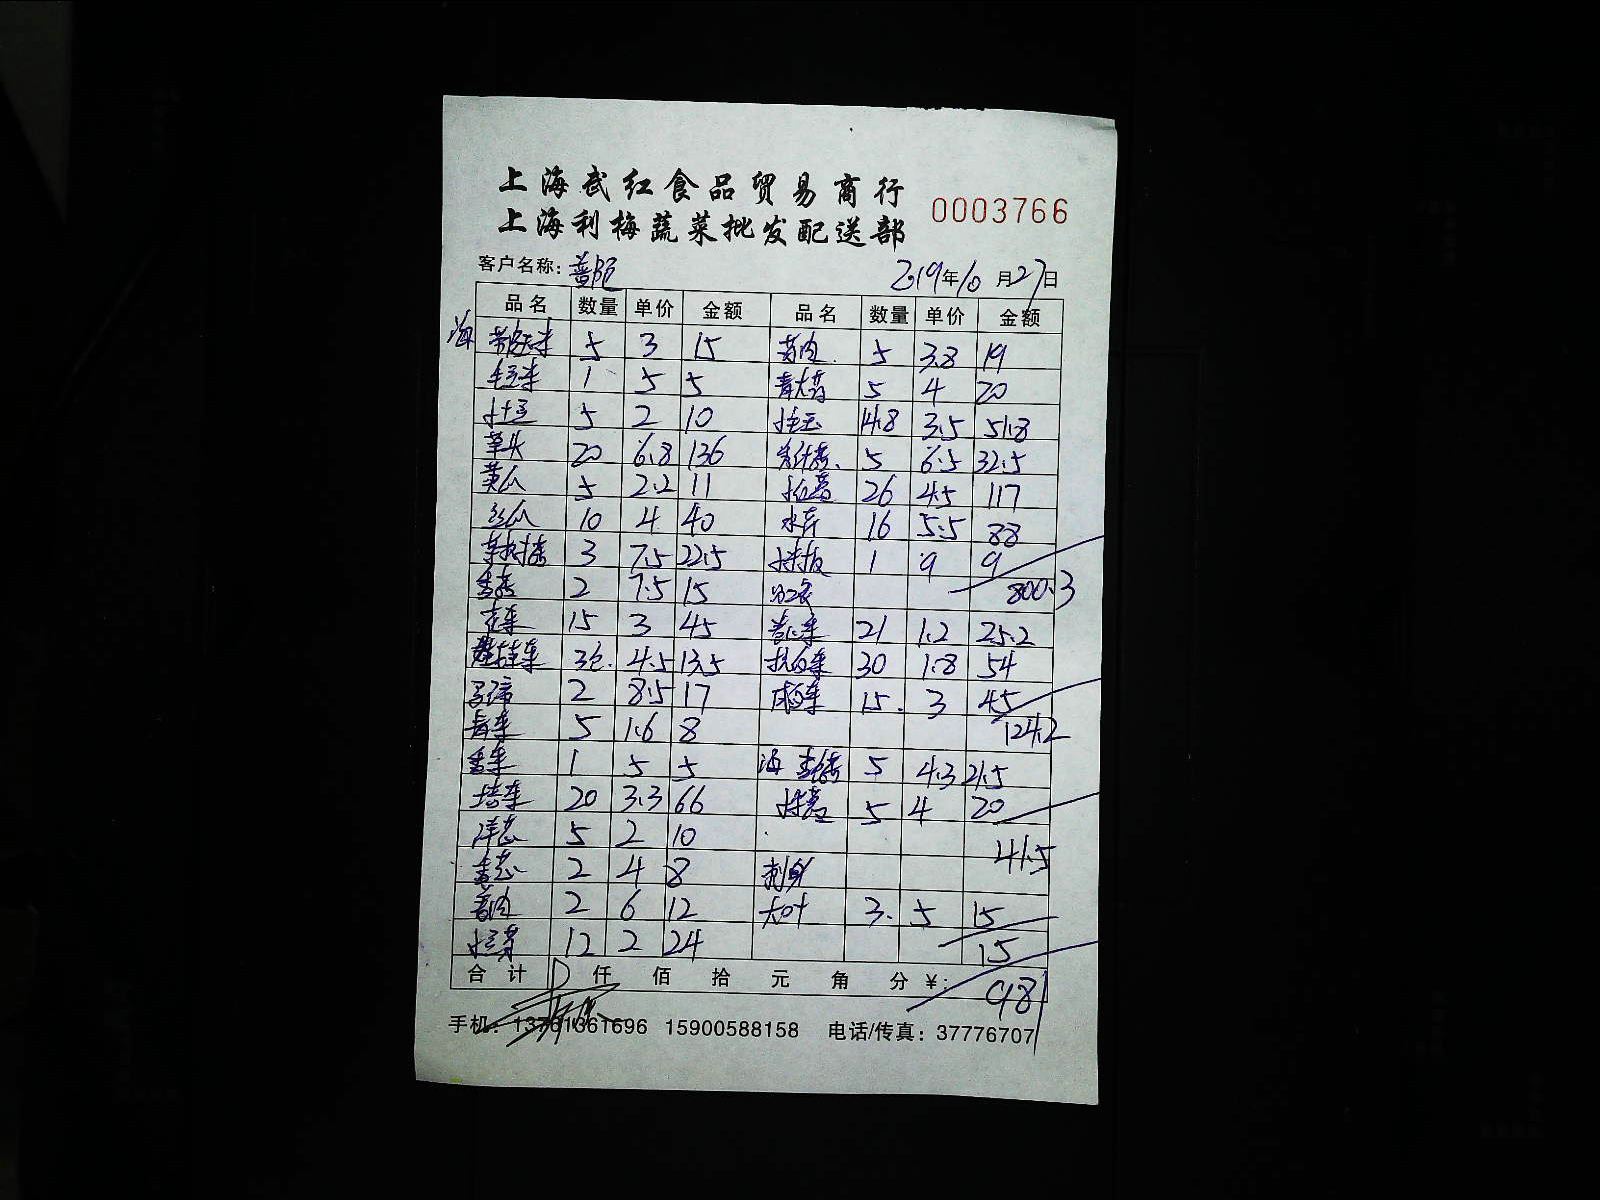 上海武红食品贸易商行
上海利梅蔬菜批发配送部
0003766
客户名称：普陀 2019年10月27日
品名 数量 单价 金额 品名 数量 单价 金额
海 5 3 15 5 3.8 19
毛豆米 1 5 5 5 4 20
土豆 5 2 10 14.8 3.5 51.8
草头 20 6.8 136 5 6.5 32.5
黄瓜 5 2.2 11 26 4.5 117
丝瓜 10 4 40 水芹 16 5.5 88
茶树菇 3 7.5 22.5 1 9 9
香菇 2 7.5 15 800.3
15 3 45 21 1.2 25.2
3包 4.5 13.5 杭白菜 30 1.8 54
马蹄 2 8.5 17 咸菜 15 3 45
青菜 5 1.6 8 124.2
香菜 1 5 5 海 5 4.3 21.5
塔菜 20 3.3 66 5 4 20
洋芯 5 2 10 41.5
2 4 8 刺身
2 6 12 大叶 3 5 15
12 2 24 15
合计 仟 佰 拾 元 角 分 ¥： 981
手机：13761361696 15900588158 电话/传真：37776707